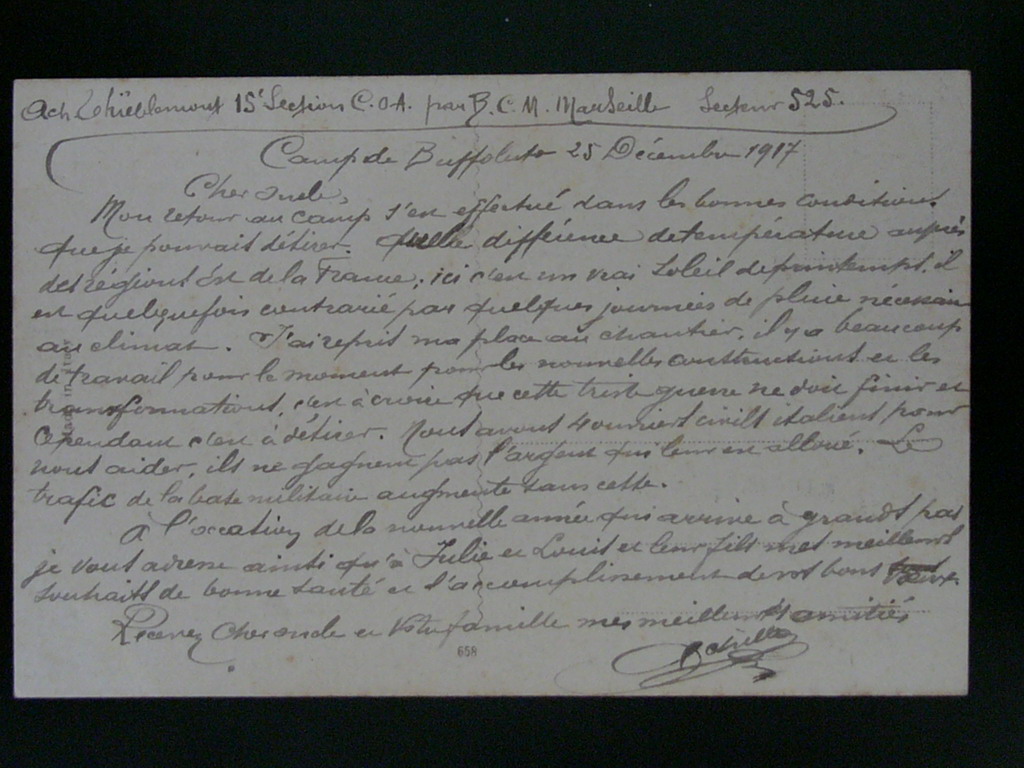 Ach. 15e Section C.O.A. par B.C.M. Marseille Secteur 525.
Camp de Buffoluto 25 Décembre 1917
Cher oncle,
Mon retour au camp s'est effectué dans les bonnes conditions
que je pouvais désirer. Quelle différence de température auprès
des régions Est de la France, ici c'est un vrai soleil de printemps, il
est quelquefois contrarié par quelques journées de pluie nécessaire
au climat. J'ai repris ma place au chantier, il y a beaucoup
de travail pour le moment pour les nouvelles constructions et les
transformations, c'est à croire que cette triste guerre ne doit finir et
cependant c'est à désirer. Nous avons 4 ouvriers civils italiens pour
nous aider, ils ne gagnent pas l'argent qui leur est alloué. Le
trafic de la base militaire augmente sans cesse.
A l'occasion de la nouvelle année qui arrive à grands pas
je vous adresse ainsi qu'à Julie et Louis et leur fils mes meilleurs
souhaits de bonne santé et l'accomplissement de vos bons vœux
Recevez cher oncle et votre famille mes meilleures amitiés
Achille
658